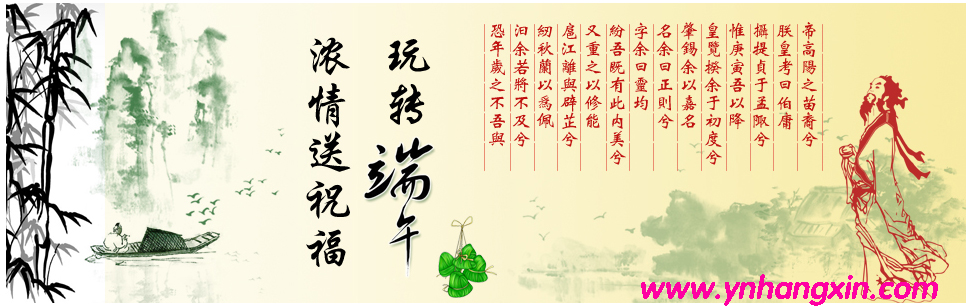 帝高陽之苗裔兮
朕皇考曰伯庸
攝提貞于孟陬兮
惟庚寅吾以降
皇覽揆余于初度兮
肇錫余以嘉名
名余曰正則兮
字余曰靈均
紛吾既有此内美兮
又重之以修能
扈江離與辟芷兮
紉秋蘭以爲佩
汩余若將不及兮
恐年歲之不吾與
玩转端午
浓情送祝福
www.ynhangxin.com